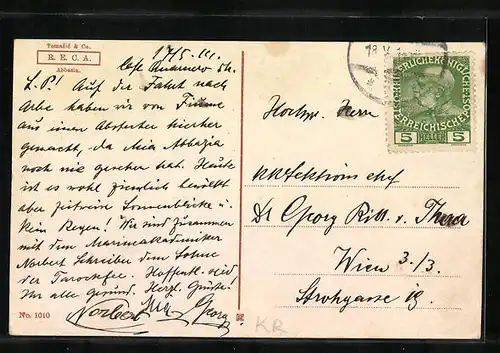 Tomažić & Co.
R. E. C. A.
Abbazia.
17/5.
Cafe Quarnero
L. P.! Auf der Fahrt nach
Arbe haben wir von Fiume
aus einen Abstecher hierher
gemacht, da Mia Abbazia
noch nie gesehen hat. Heute
ist es wohl ziemlich bewölkt
aber zeitweise Sonnenblicke u.
kein Regen! Wir sind zusammen
mit dem Marineakademiker
Norbert Schreiber dem Sohne
der Tarockfee. Hoffentl. seid
Ihr alle gesund. Herzl. Grüße!
Norbert Mia Georg
No. 1010
18.V.
5 HELLER 5
Hochw. Herrn
KK Sektions chef
Dr Georg Ritt. v.
Wien 3./3.
Strohgasse
KR